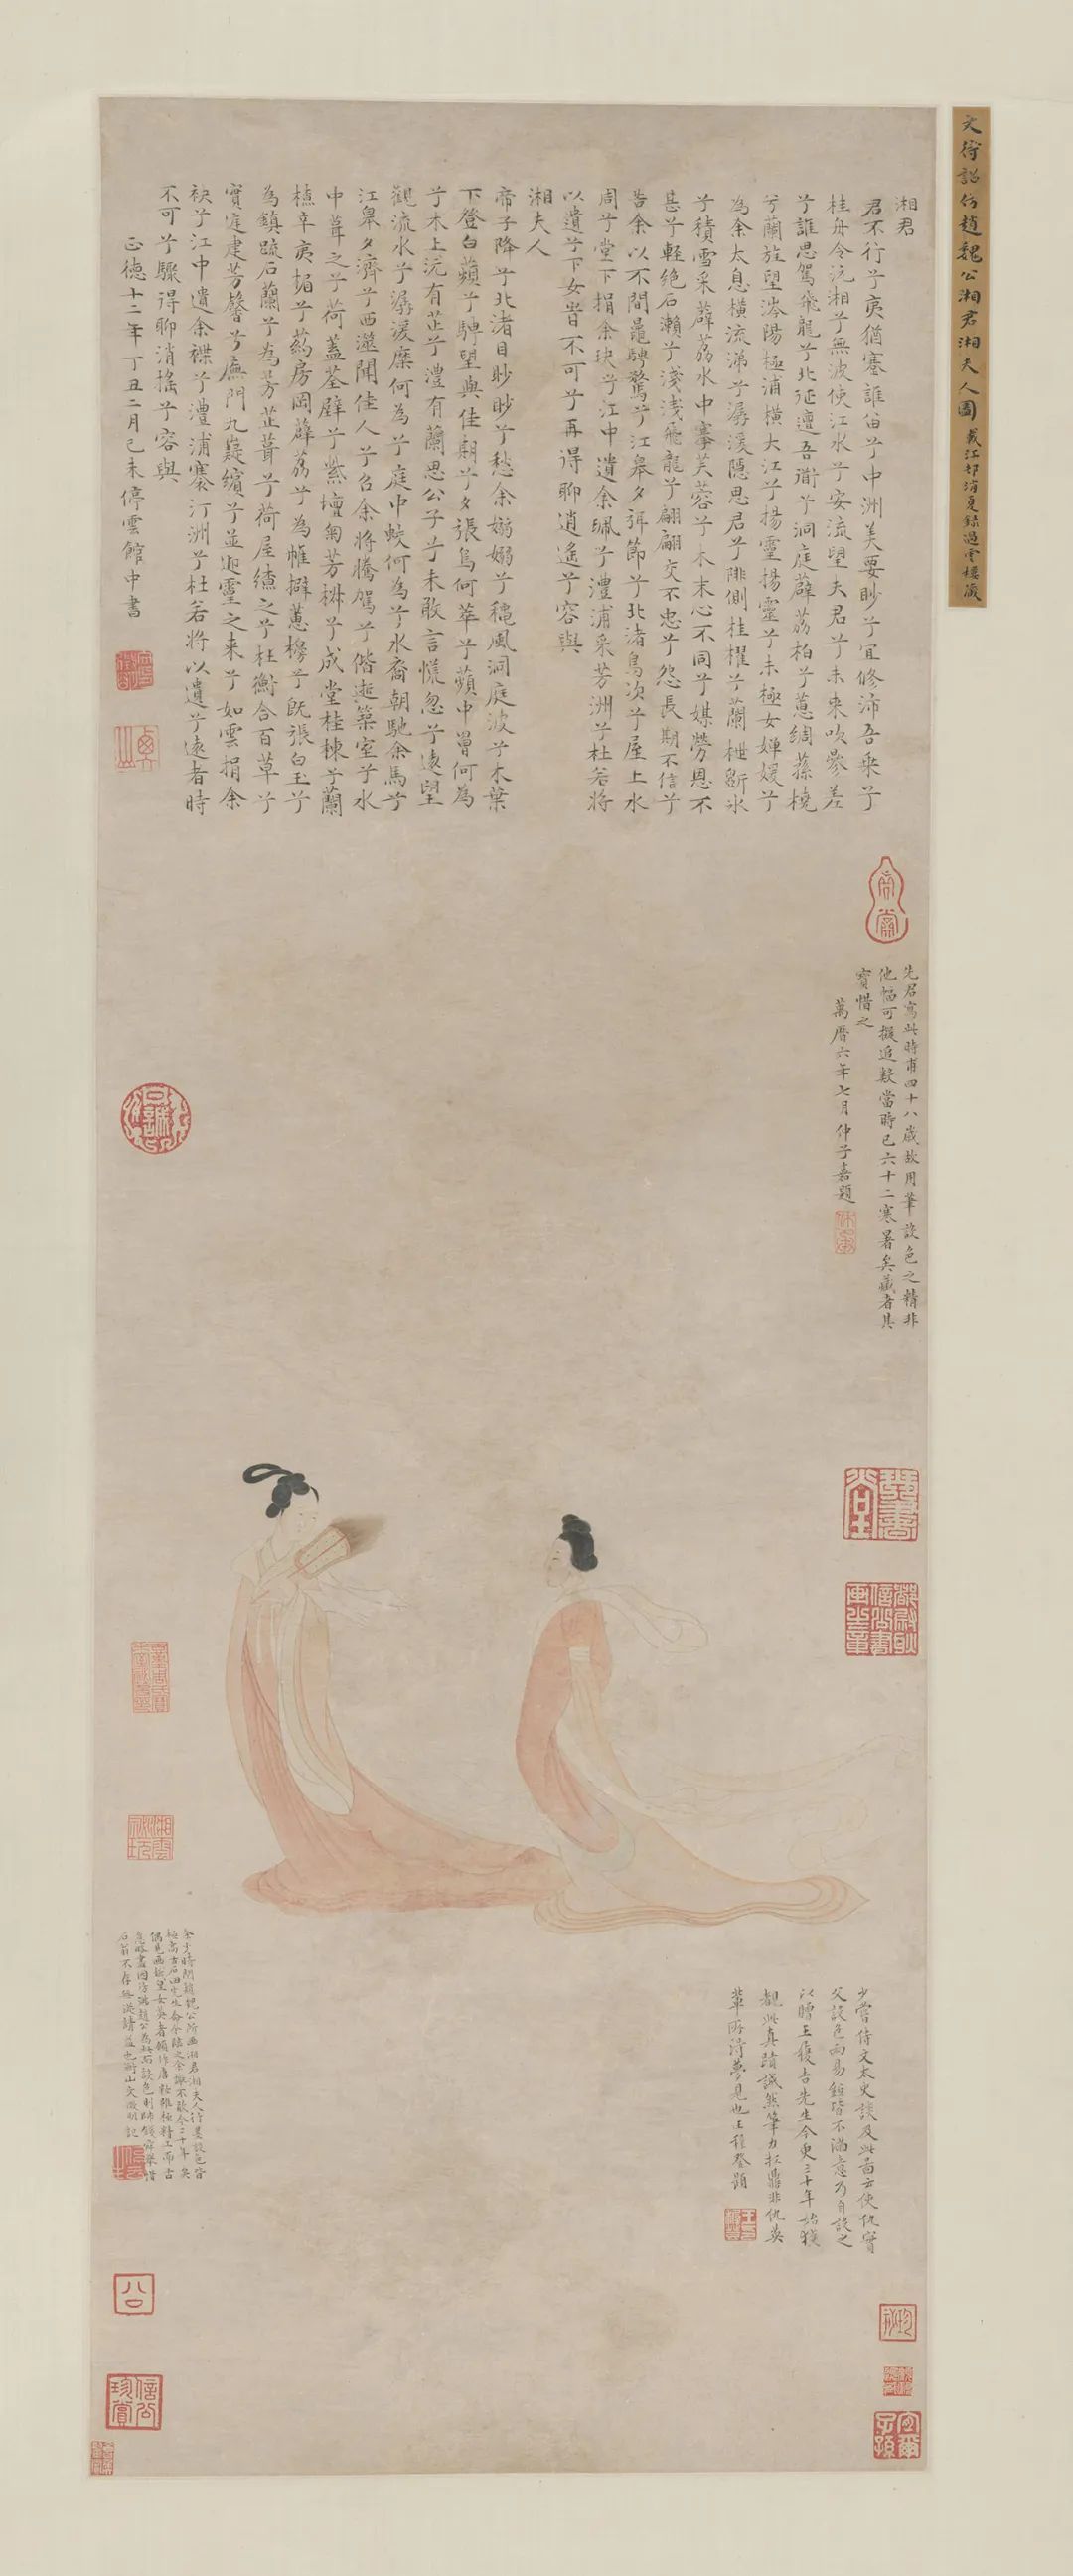 文待詔仿趙魏公湘君湘夫人圖 載江邨消夏錄過雲樓藏
湘君
君不行兮夷猶蹇誰留兮中洲美要眇兮宜修沛吾乘兮
桂舟令沅湘兮無波使江水兮安流望夫君兮未來吹參差
兮誰思駕飛龍兮北征邅吾道兮洞庭薜荔柏兮蕙綢蓀橈
兮蘭旌望涔陽極浦橫大江兮揚靈揚靈兮未極女嬋媛兮
為余太息橫流涕兮潺湲隱思君兮陫側桂櫂兮蘭枻斲冰
兮積雪采薜荔水中搴芙蓉兮木末心不同兮媒勞恩不
甚兮輕絕石瀨兮淺淺飛龍兮翩翩交不忠兮怨長期不信兮
告余以不間鼂騁騖兮江皋夕弭節兮北渚鳥次兮屋上水
周兮堂下捐余玦兮江中遺余珮兮澧浦采芳洲兮杜若將
以遺兮下女旹不可兮再得聊逍遙兮容與
湘夫人
帝子降兮北渚目眇眇兮愁余嫋嫋兮穐風洞庭波兮木葉
下登白蘋兮騁望與佳期兮夕張鳥何萃兮蘋中罾何為
兮木上沅有芷兮澧有蘭思公子兮未敢言慌忽兮遠望
觀流水兮潺湲麋何為兮庭中蛟何為兮水裔朝馳余馬兮
江皋夕濟兮西澨聞佳人兮召余將騰駕兮偕逝築室兮水
中葺之兮荷蓋荃壁兮紫壇匊芳椒兮成堂桂棟兮蘭
橑辛夷楣兮葯房罔薜荔兮為帷擗蕙櫋兮既張白玉兮
為鎮疏石蘭兮為芳芷葺兮荷屋繚之兮杜衡合百草兮
實庭建芳馨兮廡門九嶷繽兮並迎靈之來兮如雲捐余
袂兮江中遺余褋兮澧浦搴汀洲兮杜若將以遺兮遠者時
不可兮驟得聊消搖兮容與
正德十二年丁丑二月己未停雲館中書
先君寫此時甫四十八歲故用筆設色之精非
他幅可擬追數當時已六十二寒暑矣藏者其
寶惜之
萬曆六年七月仲子嘉題
少嘗侍文太史談及此圖云使仇實
父設色兩易紙皆不滿意乃自設之
以贈王履吉先生今更三十年始獲
覩此真蹟誠然筆力扛鼎非仇英
輩所得夢見也王穉登題
余少時閱趙魏公所畫湘君湘夫人行墨設色皆
極高古石田先生命余臨之余謝不敢今二十年矣
偶見畫娥皇女英者顧作唐粧雖極精工而古
意略盡因仿佛趙公為此而設色則師錢舜舉惜
石翁不存無從請益也衡山文徵明記